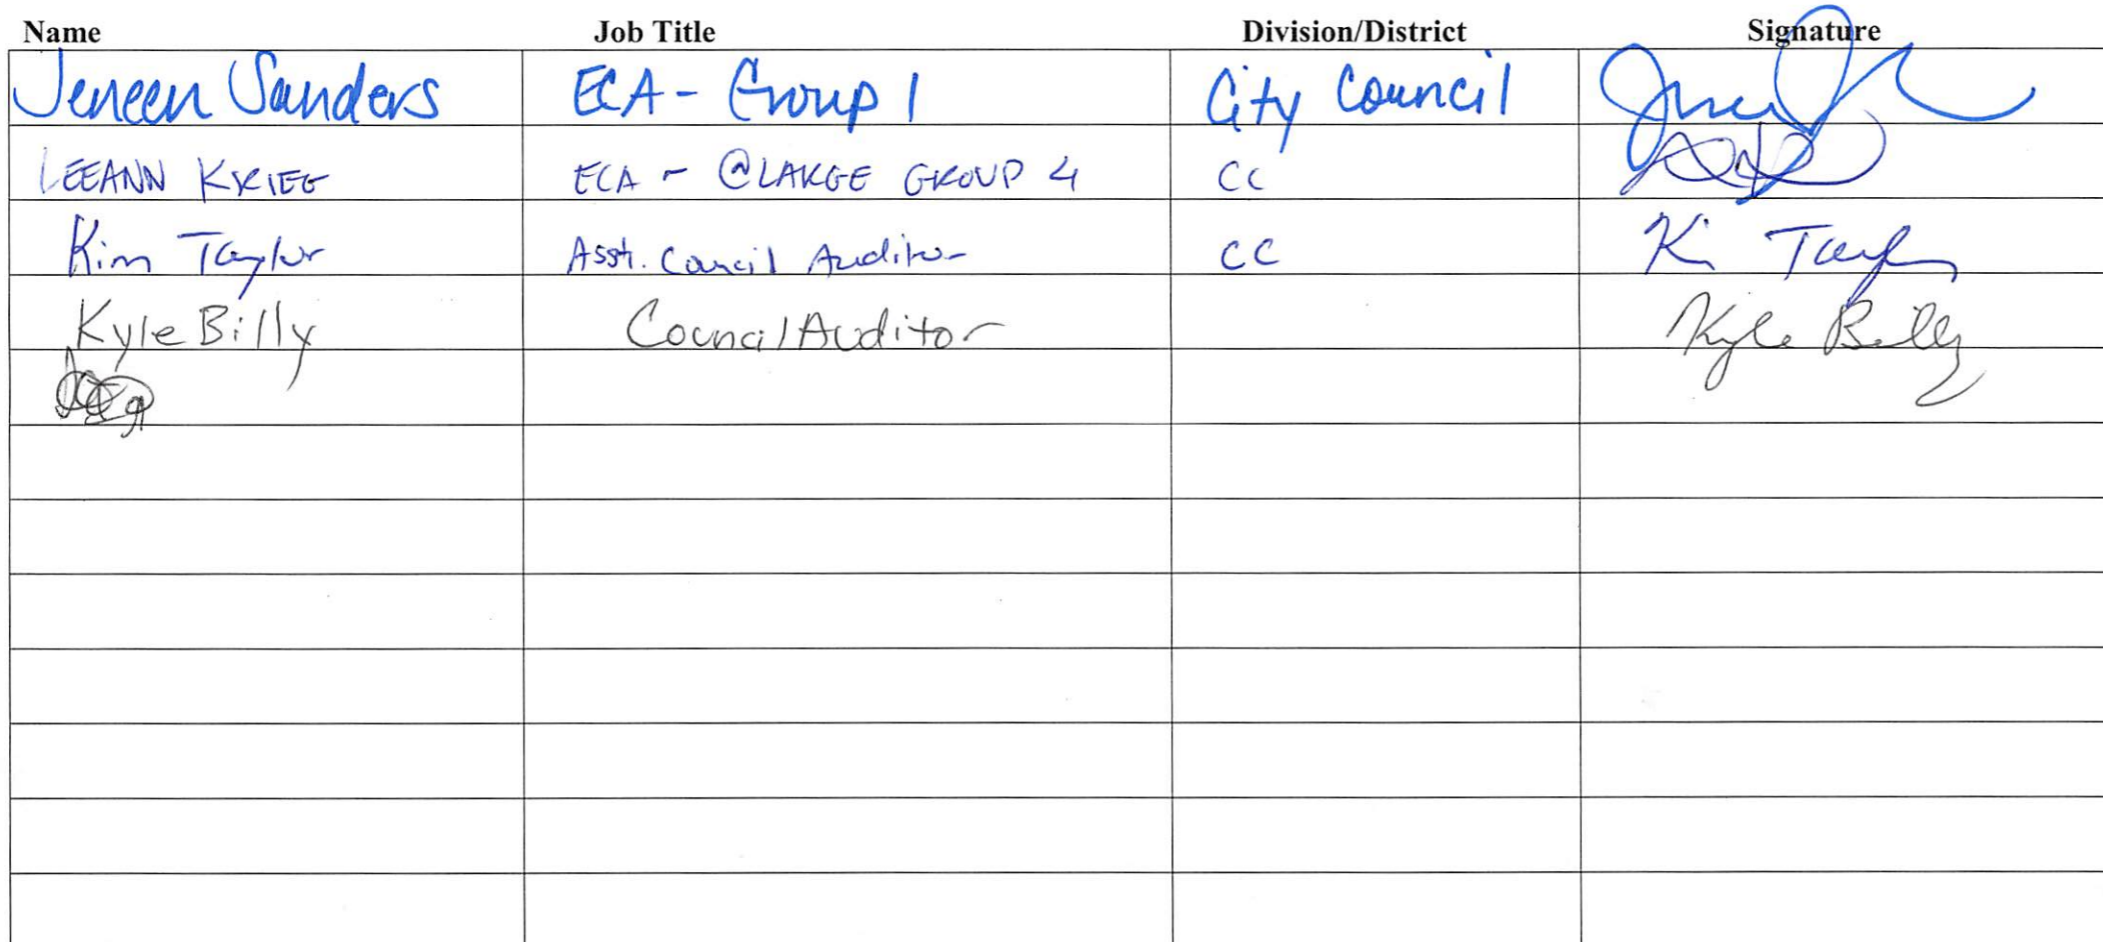 Name Job Title Division/District Signature
Jeneen Sanders ECA - Group 1 City Council
LEEANN KRIEG ECA - @LARGE GROUP 4 CC
Kim Taylor Asst. Council Auditor CC Ki Tayl
Kyle Billy Council Auditor Kyle Billy